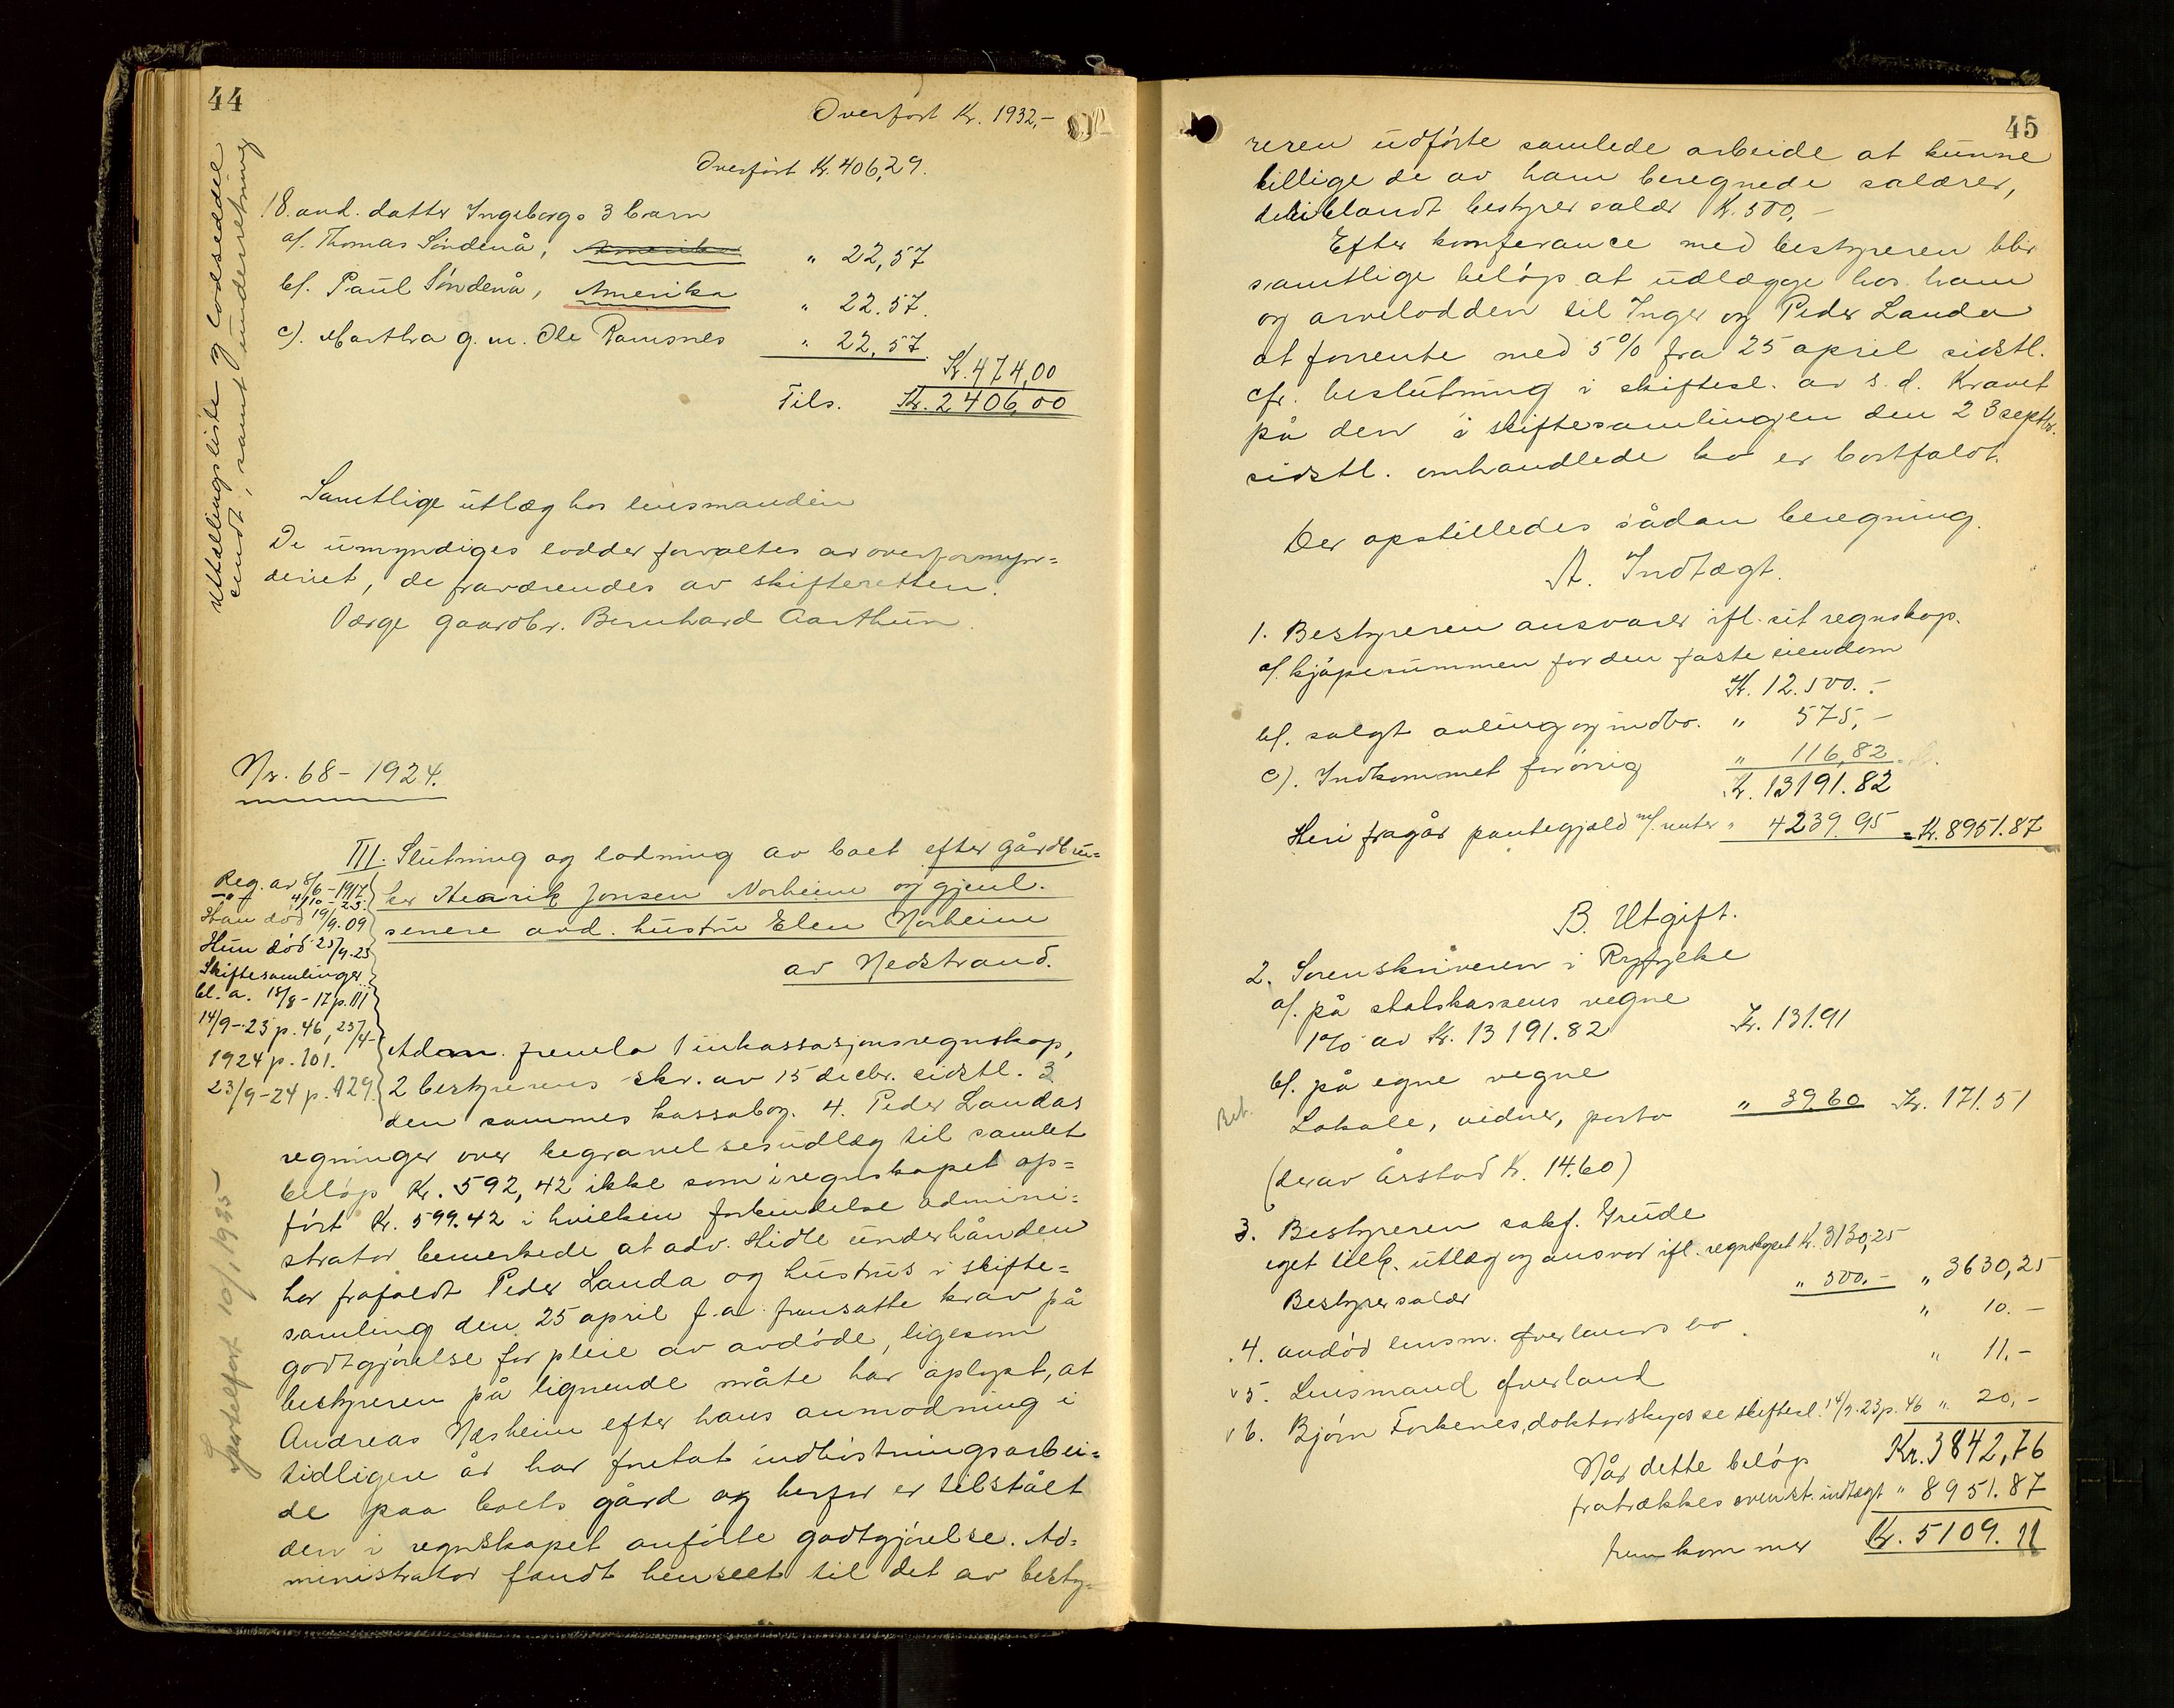 44
Overført Kr. 1932,-
Overført Kr. 406,29.
18. avd. datter Ingeborgs 3 barn
a/. Thomas Søndenå, Amerika " 22,57
b/. Paul Søndenå, Amerika " 22.57.
c). Martha g. m. Ole Ramsnes " 22,57
Kr. 474,00
Tils. Kr. 2406,00
Uttallingsliste og lodsseddel
sendt, samt underretning
Samtlige utlæg hos lensmanden
De umyndiges lodder forvaltes av overformyn=
deriet, de fraværendes av skifteretten.
Værge gaardbr. Bernhard Aarthun.
Nr. 68 - 1924.
III. Slutning og lodning av boet efter gårdbru=
ker Henrik Jonsen Norheim og gjenl.
senere avd. hustru Elen Norheim
av Nedstrand.
Reg. av 8/6-1917
-"- 4/10-23.
Han død 19/9.09
Hun død 23/9-23
Skiftesamlinger
bl. a. 18/8-17 p. 111
14/9-23 p. 46, 25/4-
1924 p. 101.
23/9-24 p. 129.
Adm. fremla 1 inkassasjonsregnskap,
2 bestyrerens skr. av 15 decbr. sidstl. 3
den sammes kassabog. 4. Peder Landas
regninger over begravelsesudlæg til samlet
beløp Kr. 592,42 ikke som i regnskapet op=
ført Kr. 599.42 i hvilken forbindelse admini=
strator bemerkede at adv. Hidle underhånden
har frafaldt Peder Landa og hustrus i skifte=
samling den 25 april f.a. fremsatte krav på
godtgjørelse for pleie av avdøde, ligesom
bestyreren på lignende måte har oplyst, at
Andreas Næsheim efter hans anmodning i
tidligere år har foretat indhøstningsarbei=
de paa boets gård og herfor er tilstålt
den i regnskapet anførte godtgjørelse. Ad=
ministrator fandt henseet til det av besty=
Sportelført 10/1 1935
45
reren udførte samlede arbeide at kunne
billige de av ham beregnede salærer,
deriblandt bestyrersalær Kr. 500,-
Efter konferance med bestyreren blir
samtlige beløp at udlægge hos ham
og arvelodden til Inger og Peder Landa
at forrente med 5% fra 25 april sidstl.
cfr. beslutning i skiftesl. av s. d. Kravet
på den i skiftesamlingen den 23 septbr.
sidstl. omhandlede ko er bortfaldt.
Der opstilledes sådan beregning.
A. Indtægt.
1. Bestyreren ansvarer ifl. sit regnskap.
a/. kjøpesummen for den faste eiendom
Kr. 12.500.-
b/. solgt avling og indbo. " 575,-
c). Indkommet forøvrig " 116,82
Kr. 13191.82
Heri fragår pantegjæld m/ renter " 4239.95 = Kr. 8951.87
B. Utgift.
2. Sorenskriveren i Ryfylke
a/. på statskassens vegne
1% av Kr. 13191.82 Kr. 131.91
b/. på egne vegne
Bet.
Lokale, vidner, porto " 39.60 Kr. 171.51
(derav Årstad Kr. 14.60)
3. Bestyreren sakf. Grude
eget tilk. utlæg og ansvar ifl. regnskapet Kr. 3130,25
Bestyrersalær " 500.- " 3630,25
4. avdød lensm. Øverlands bo " 10.-
v 5. Lensmand Øverland " 11.-
v 6. Bjørn Torkenes, doktorskyss se skiftesl. 14/9.23 p. 46 " 20,-
Når dette beløp Kr. 3842,76
fratrækkes ovenst. indtægt " 8951.87
fremkommer Kr. 5109.11